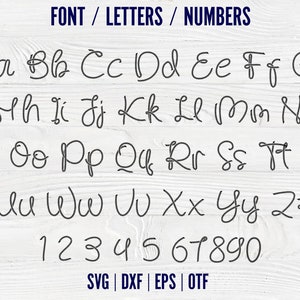 FONT / LETTERS / NUMBERS
a Bb Cc Dd Ee Ff
Hh Ii Jj Kk Ll Mm N
Oo Pp Qq Rr Ss Tt
Uu Ww Vv Xx Yy Z
1 2 3 4 5 6 7 8 9 0
SVG | DXF | EPS | OTF